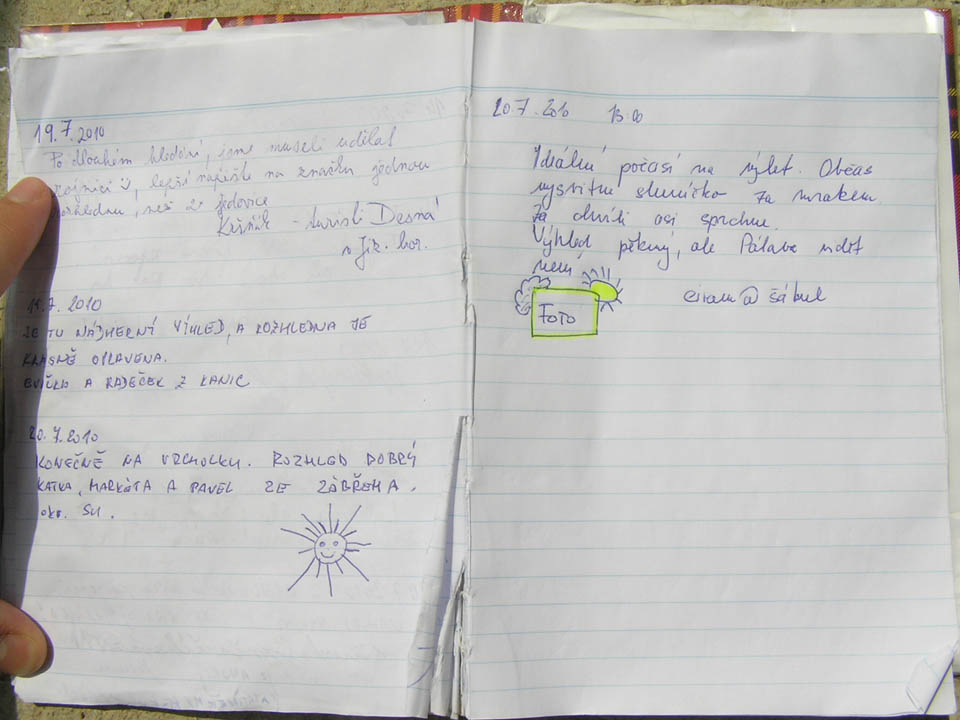 19.7.2010
Po dlouhém hledání, jsme museli udělat
lepší napište na značku jednou
rozhlednu, než 2x
turisti Desná
v Jiz. hor.
19.7.2010
JE TU NÁDHERNÍ VÍHLED, A ROZHLEDNA JE
KRÁSNĚ OPRAVENA.
EVIČKA A RADEČEK Z KANIC
20.7.2010
KONEČNĚ NA VRCHOLKU. ROZHLED DOBRÝ
KATKA, MARKÉTA A PAVEL ZE ZÁBŘEHA.
okr. SU.
20.7.2010 13:00
Ideální počasí na výlet. Občas
vysvitne sluníčko za mrakem.
Za chvíli asi sprchne.
Výhled pěkný, ale Pálava vidět
není
FOTO
@ šábul